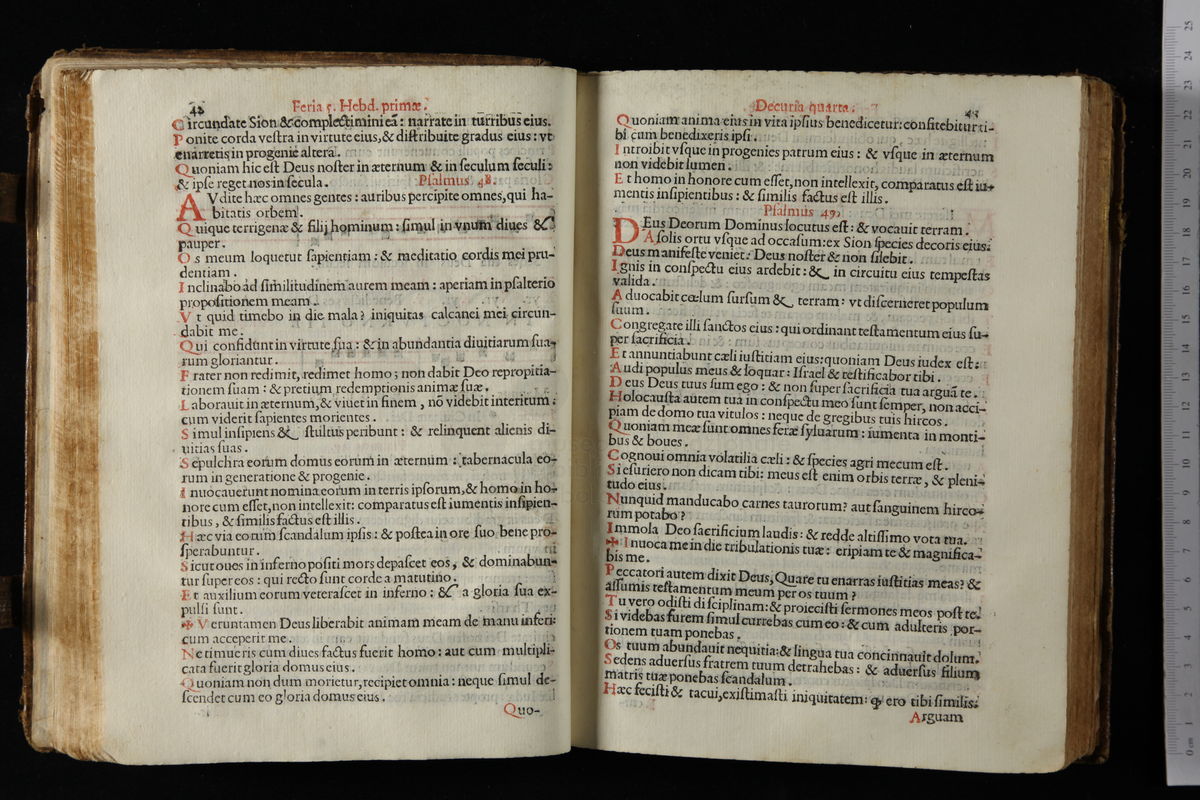 42
Feria 5. Hebd. primæ.
Circundate Sion & complectimini eã: narrate in turribus eius.
Ponite corda veſtra in virtute eius, & diſtribuite gradus eius: vt
enarretis in progenie altera.
Quoniam hic eſt Deus noſter in æternum & in ſeculum ſeculi:
& ipſe reget nos in ſecula. Pſalmus 48.
AVdite hæc omnes gentes: auribus percipite omnes, qui ha-
bitatis orbem.
Quique terrigenæ & filij hominum: ſimul in vnum diues &
pauper.
Os meum loquetur ſapientiam: & meditatio cordis mei pru-
dentiam.
Inclinabo ad ſimilitudinem aurem meam: aperiam in pſalterio
propoſitionem meam.
Vt quid timebo in die mala? iniquitas calcanei mei circun-
dabit me.
Qui confidunt in virtute ſua: & in abundantia diuitiarum ſua-
rum gloriantur.
Frater non redimit, redimet homo; non dabit Deo repropitia-
tionem ſuam: & pretium redemptionis animæ ſuæ.
Laborauit in æternum, & viuet in finem, nõ videbit interitum:
cum viderit ſapientes morientes.
Simul inſipiens & ſtultus peribunt: & relinquent alienis di-
uitias ſuas.
Sepulchra eorum domus eorum in æternum: tabernacula eo-
rum in generatione & progenie.
Inuocauerunt nomina eorum in terris ipſorum, & homo in ho-
nore cum eſſet, non intellexit: comparatus eſt iumentis inſipien-
tibus, & ſimilis factus eſt illis.
Hæc via eorum ſcandalum ipſis: & poſtea in ore ſuo bene pro-
ſperabuntur.
Sicut oues in inferno poſiti mors depaſcet eos, & dominabun-
tur ſuper eos: qui recto ſunt corde a matutino.
Et auxilium eorum veteraſcet in inferno: & a gloria ſua ex-
pulſi ſunt.
✠ Veruntamen Deus liberabit animam meam de manu inferi:
cum acceperit me.
Ne timueris cum diues factus fuerit homo: aut cum multipli-
cata fuerit gloria domus eius.
Quoniam non dum morietur, recipiet omnia: neque ſimul de-
ſcendet cum eo gloria domus eius.
Quo-
Decuria quarta.
43
Quoniam anima eius in vita ipſius benedicetur: confitebitur ti-
bi cum benedixeris ipſi.
Introibit vſque in progenies patrum eius: & vſque in æternum
non videbit lumen.
Et homo in honore cum eſſet, non intellexit, comparatus eſt iu-
mentis inſipientibus: & ſimilis factus eſt illis.
Pſalmus 49.
DEus Deorum Dominus locutus eſt: & vocauit terram.
A ſolis ortu vſque ad occaſum: ex Sion ſpecies decoris eius.
Deus manifeſte veniet: Deus noſter & non ſilebit.
Ignis in conſpectu eius ardebit: & in circuitu eius tempeſtas
valida.
Aduocabit cœlum ſurſum & terram: vt diſcerneret populum
ſuum.
Congregate illi ſanctos eius: qui ordinant teſtamentum eius ſu-
per ſacrificia.
Et annuntiabunt cæli iuſtitiam eius: quoniam Deus iudex eſt.
Audi populus meus & loquar: Iſrael & teſtificabor tibi.
Deus Deus tuus ſum ego: & non ſuper ſacrificia tua arguã te.
Holocauſta autem tua in conſpectu meo ſunt ſemper, non acci-
piam de domo tua vitulos: neque de gregibus tuis hircos.
Quoniam meæ ſunt omnes feræ ſyluarum: iumenta in monti-
bus & boues.
Cognoui omnia volatilia cæli: & ſpecies agri mecum eſt.
Si eſuriero non dicam tibi: meus eſt enim orbis terræ, & pleni-
tudo eius.
Nunquid manducabo carnes taurorum? aut ſanguinem hirco-
rum potabo?
Immola Deo ſacrificium laudis: & redde altiſſimo vota tua.
✠ Inuoca me in die tribulationis tuæ: eripiam te & magnifica-
bis me.
Peccatori autem dixit Deus, Quare tu enarras iuſtitias meas? &
aſſumis teſtamentum meum per os tuum?
Tu vero odiſti diſciplinam: & proieciſti ſermones meos poſt te.
Si videbas furem ſimul currebas cum eo: & cum adulteris por-
tionem tuam ponebas.
Os tuum abundauit nequitia: & lingua tua concinnauit dolum.
Sedens aduerſus fratrem tuum detrahebas: & aduerſus filium
matris tuæ ponebas ſcandalum.
Hæc feciſti & tacui, exiſtimaſti iniquitatem: ꝙ ero tibi ſimilis:
Arguam